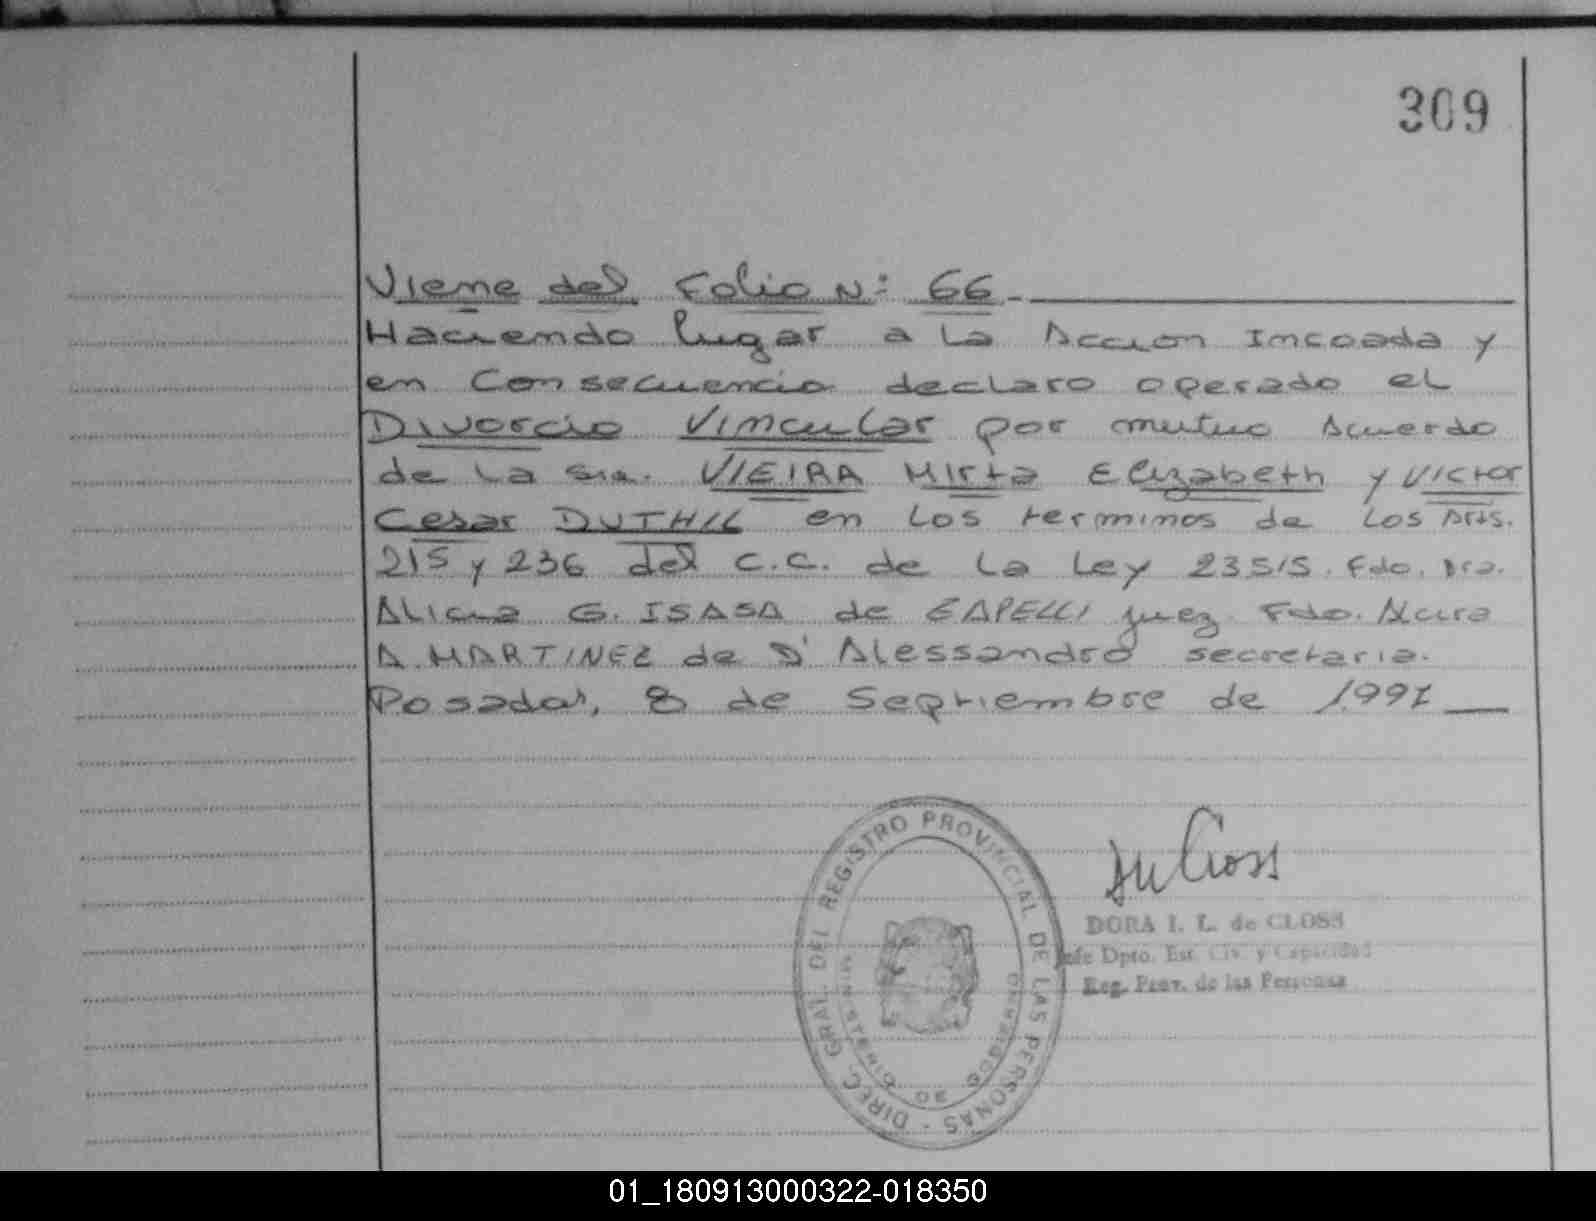 309
Viene del Folio N: 66.
Haciendo lugar a la Accion Incoada y
en Consecuencia declaro operado el
Divorcio Vincular por mutuo Acuerdo
de la Sra. VIEIRA Mirta Elizabeth y Victor
Cesar DUTHIL en los terminos de los Arts.
215 y 236 del C.C. de la Ley 23515. Fdo. Dra.
Alicia G. ISASA de juez. Fdo.
A. MARTINEZ de D'Alessandro secretaria.
Posadas, 8 de Septiembre de 1.991
DIREC. GRAL. DEL REGISTRO PROVINCIAL DE LAS PERSONAS -
MINISTERIO DE GOBIERNO
DORA I. L. de CLOSS
Jefe Dpto. Est. Civ. y Capacidad
Reg. Prov. de las Personas
01_180913000322-018350